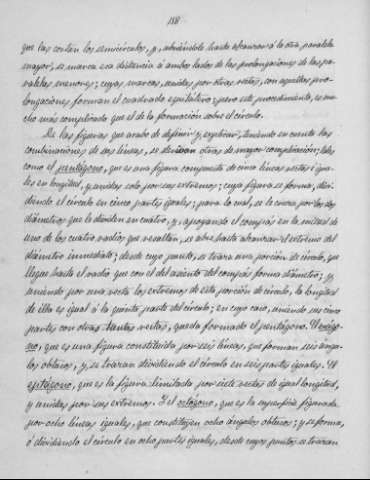 188
que las cortan los semicírculos, y, abriéndole hasta alcanzar á la otra paralela
mayor, se marca esa distancia á ambos lados de las prolongaciones de las pa-
ralelas menores; cuyas marcas, unidas por otras rectas, con aquellas pro-
longaciones forman el cuadrado equitativo; pero este procedimiento, es mu-
cho más complicado que el de la formación sobre el círculo.
De las figuras que acabo de definir y explicar, teniendo en cuenta las
combinaciones de sus líneas, se derivan otras de mayor complicación; tales
como el pentágono, que es una figura compuesta de cinco líneas rectas igua-
les en longitud, y unidas solo por sus extremos; cuya figura se forma, divi-
diendo el círculo en cinco partes iguales; para lo cual, se le cruza por los dos
diámetros que le dividen en cuatro, y, apoyando el compás en la mitad de
uno de los cuatro radios que resultan, se abre hasta alcanzar el extremo del
diámetro inmediato; desde cuyo punto, se tirará una porción de círculo, que
llegue hasta el radio que con el del asiento del compás forma diámetro; y,
uniendo por una recta los extremos de esta porción de círculo, la longitud
de ella es igual á la quinta parte del círculo; en cuyo caso, uniendo sus cinco
partes con otras tantas rectas, queda formado el pentágono. El exágo-
no, que es una figura constituida por seis líneas, que forman seis ángu-
los obtusos, y se trazan dividiendo el círculo en seis partes iguales. El
eptágono, que es la figura limitada por siete rectas de igual longitud,
y unidas por sus extremos. Y el octógono, que es la superficie figurada
por ocho líneas iguales, que constituyen ocho ángulos obtusos; y se forma,
ó dividiendo el círculo en ocho partes iguales, desde cuyos puntos se trazan